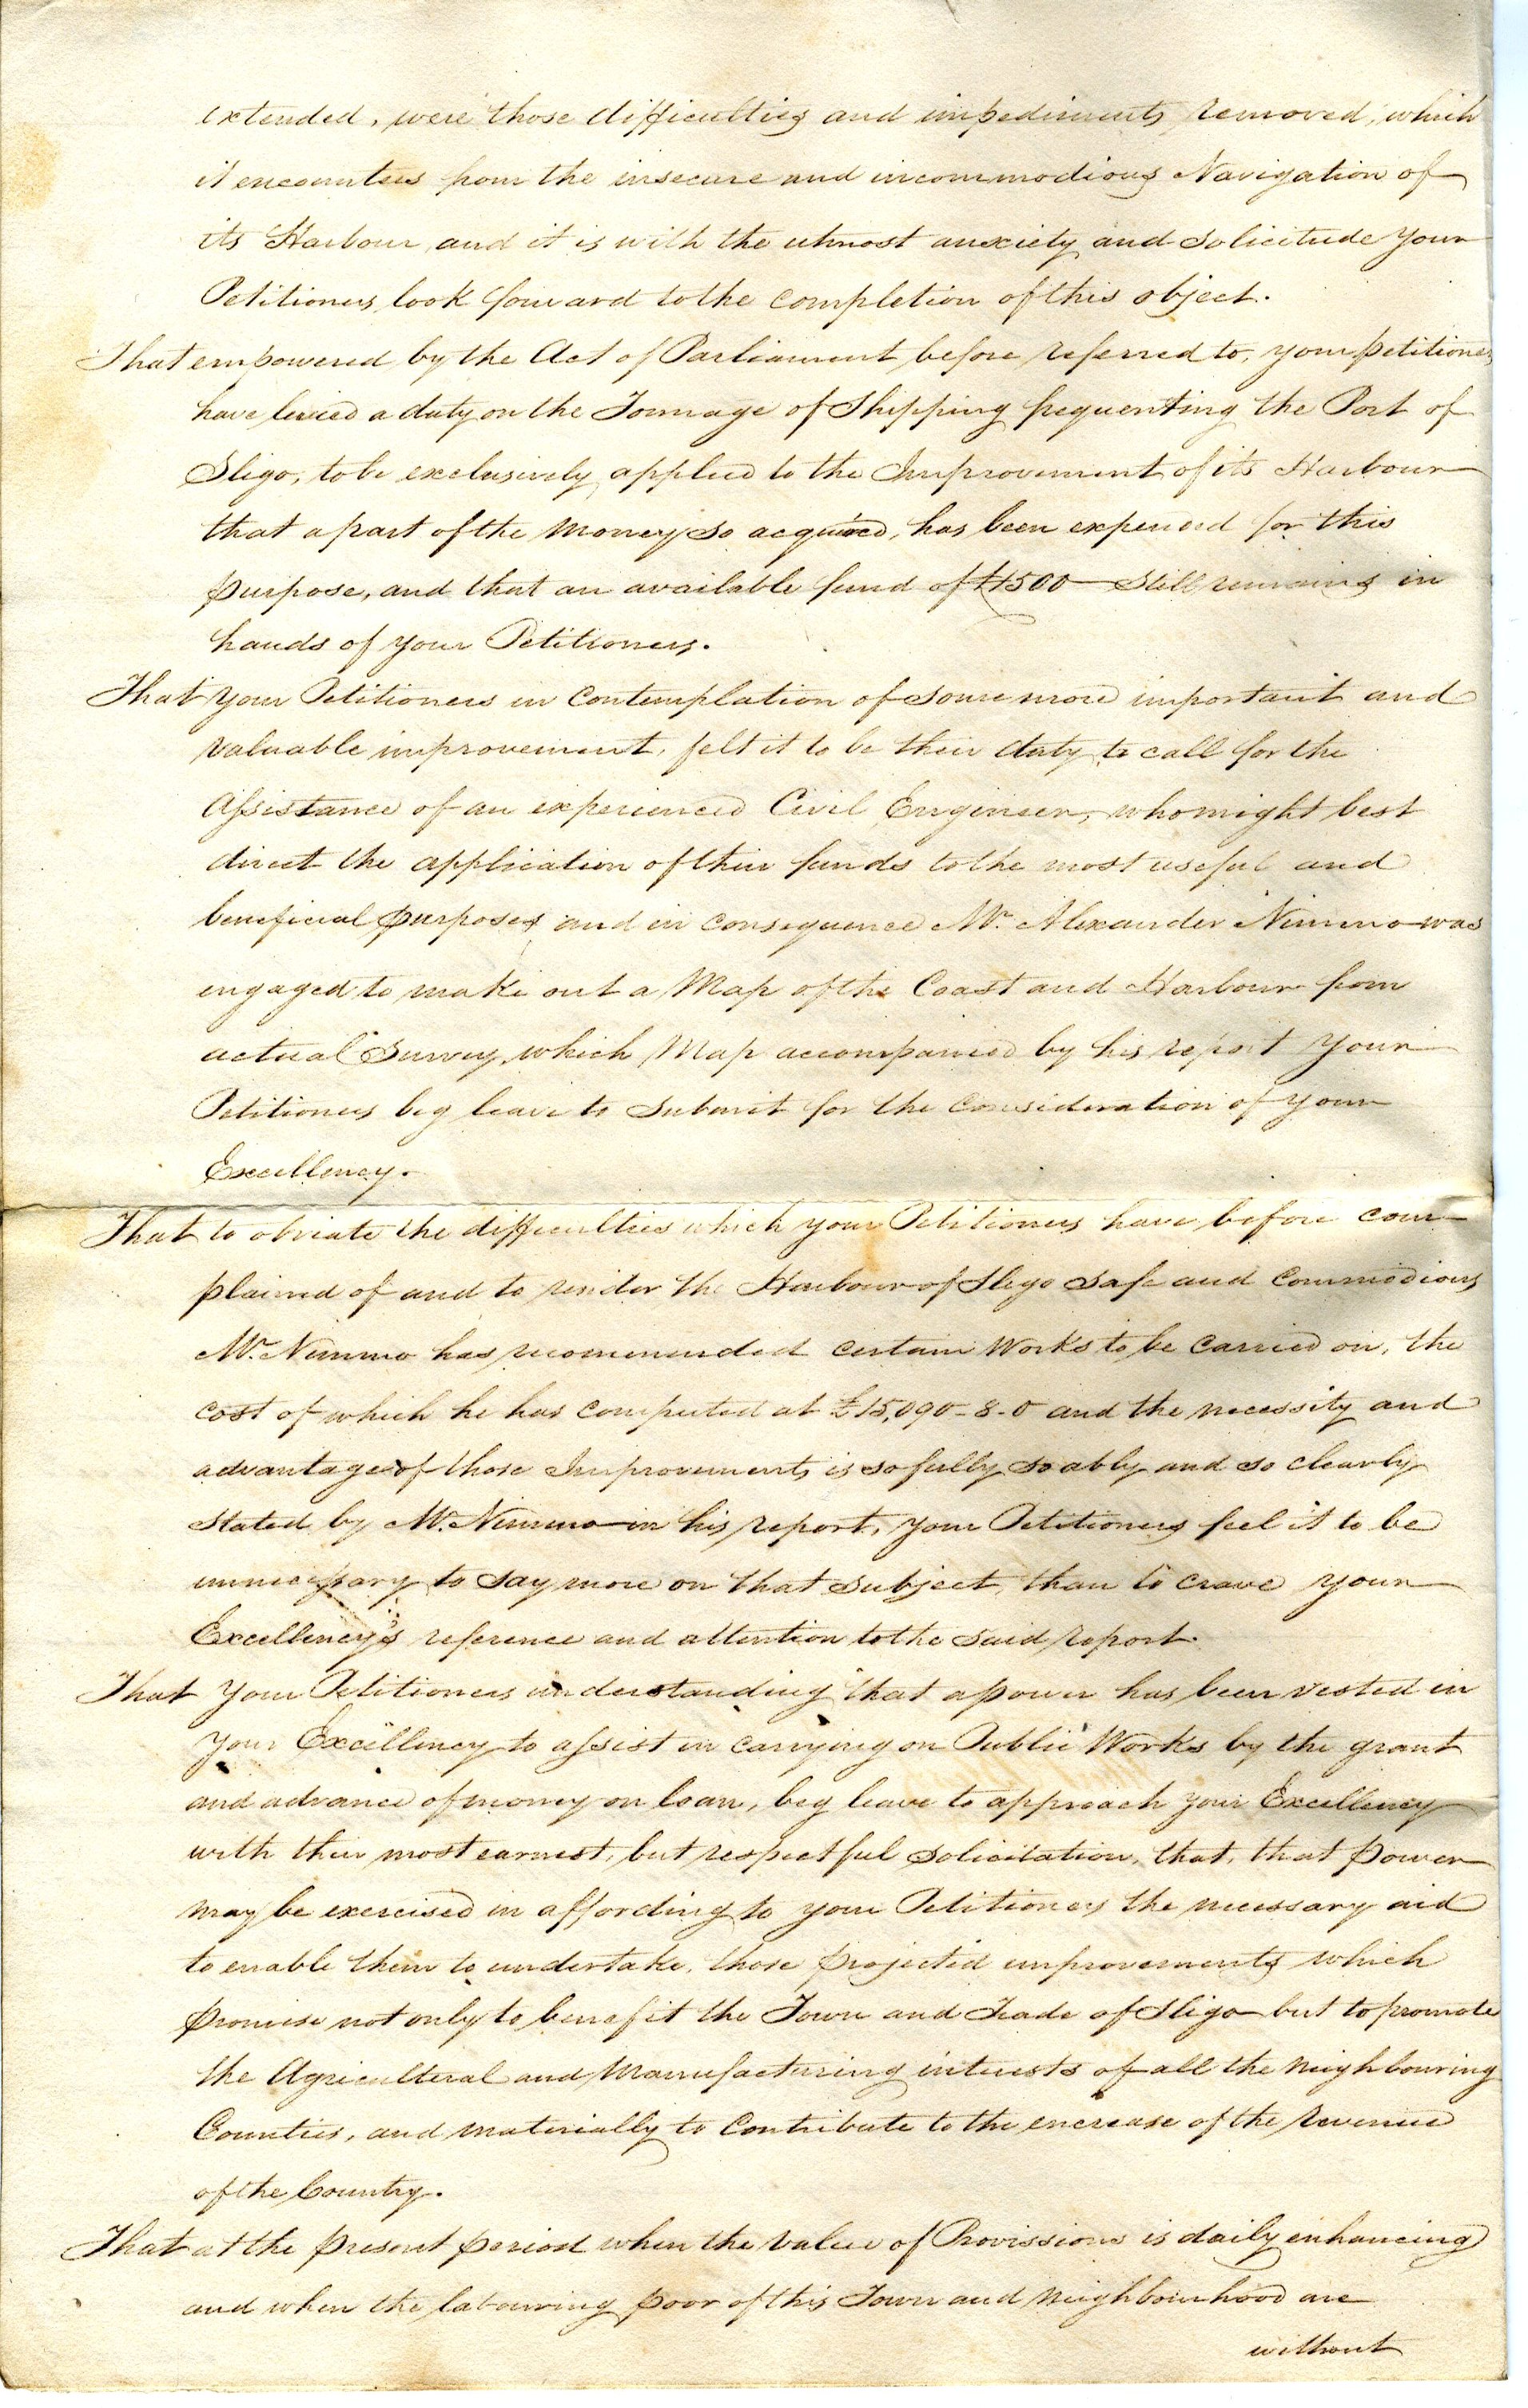 extended, were those difficulties and impediments removed, which
it encounters from the insecure and incommodious Navigation of
its Harbour, and it is with the utmost anxiety and solicitude your
Petitioners look forward to the completion of this object.
That empowered by the Act of Parliament before referred to, your petitioners
have levied a duty on the Tonnage of Shipping frequenting the Port of
Sligo, to be exclusively applied to the Improvement of it's Harbour
that a part of the money so acquired, has been expended for this
purpose, and that an available fund of £1500 still remains in
hands of your Petitioners.
That your Petitioners in contemplation of some more important and
valuable improvement, felt it to be their duty to call for the
Assistance of an experienced Civil Engineer, who might best
direct the application of their funds to the most useful and
beneficial purposes and in consequence Mr. Alexander Nimmo was
engaged to make out a Map of the Coast and Harbour from
actual Survey, which Map accompanied by his report your
Petitioners beg leave to submit for the consideration of your
Excellency.
That to obviate the difficulties which your Petitioners have before com-
plained of and to render the Harbour of Sligo safe and commodious
Mr. Nimmo has recommended certain Works to be carried on, the
cost of which he has computed at £15,090-8-0 and the necessity and
advantage of those Improvements is so fully so ably and so clearly
stated by Mr. Nimmo in his report, your Petitioners feel it to be
unnecessary to say more on that subject, than to crave your
Excellency's reference and attention to the said report.
That your Petitioners understanding that a power has been vested in
your Excellency to assist in carrying on Public Works by the grant
and advance of money on loan, beg leave to approach your Excellency
with their most earnest, but respectful solicitation, that, that power
may be exercised in affording to your Petitioners the necessary aid
to enable them to undertake, those projected improvements which
promise not only to benefit the Town and Trade of Sligo but to promote
the Agricultural and Manufacturing interests of all the neighbouring
Counties, and materially to contribute to the encrease of the revenue
of the Country.
That at the present period when the value of Provissions is daily enhancing
and when the labouring poor of this Town and neighbourhood are
without